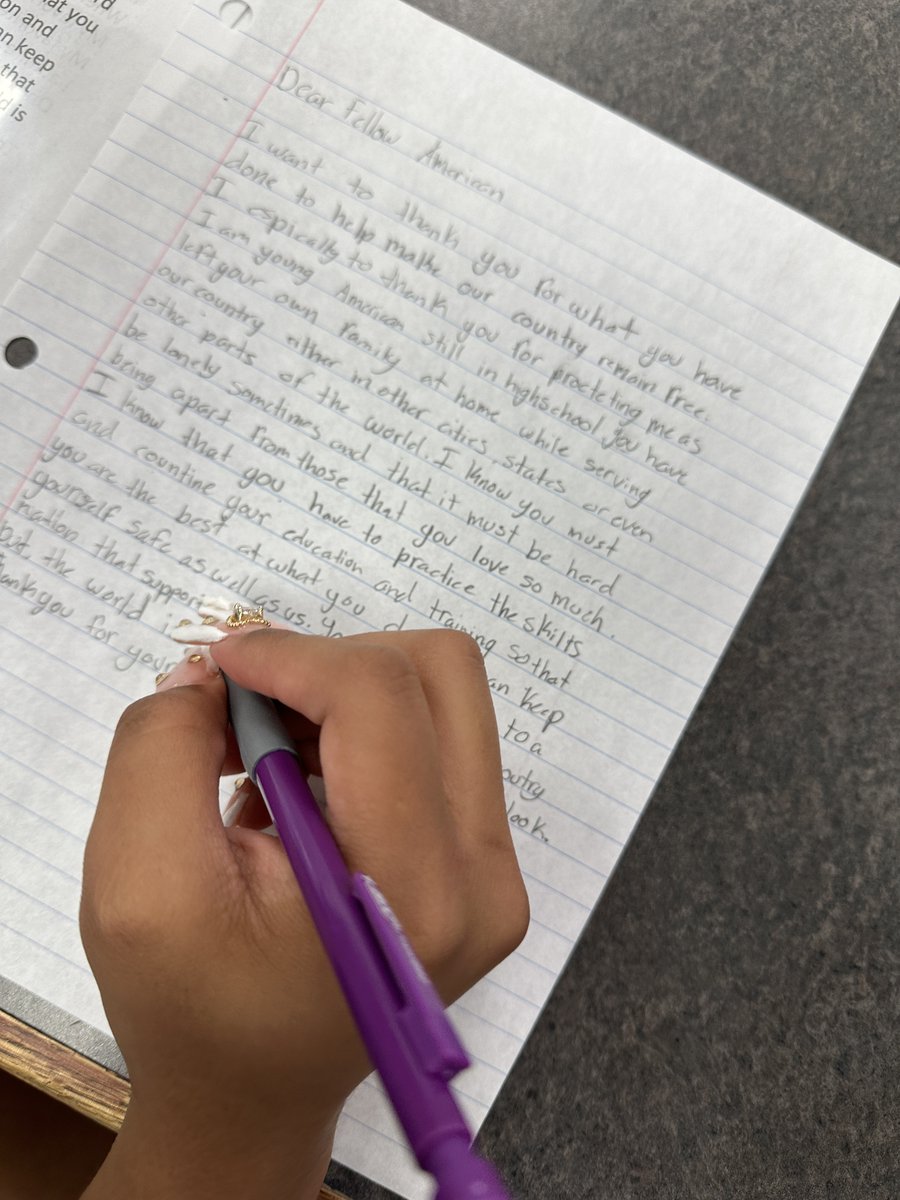 at you
on and
an keep
that
is
Dear Fellow American
I want to thank you for what you have
done to help malke our country remain free.
I espically to thank you for protecting me as
I am young American still in highschool you have
left your own family at home while serving
our country either in other cities, states or even
other parts of the world. I know you must
be lonely sometimes and that it must be hard
being apart from those that you love so much.
I know that you have to practice the skilts
and countine your education and training so that
you are the best at what you d an keep
yourself safe as well as us. Yo to a
nation that suppor outry
the world i look.
Thank you for your